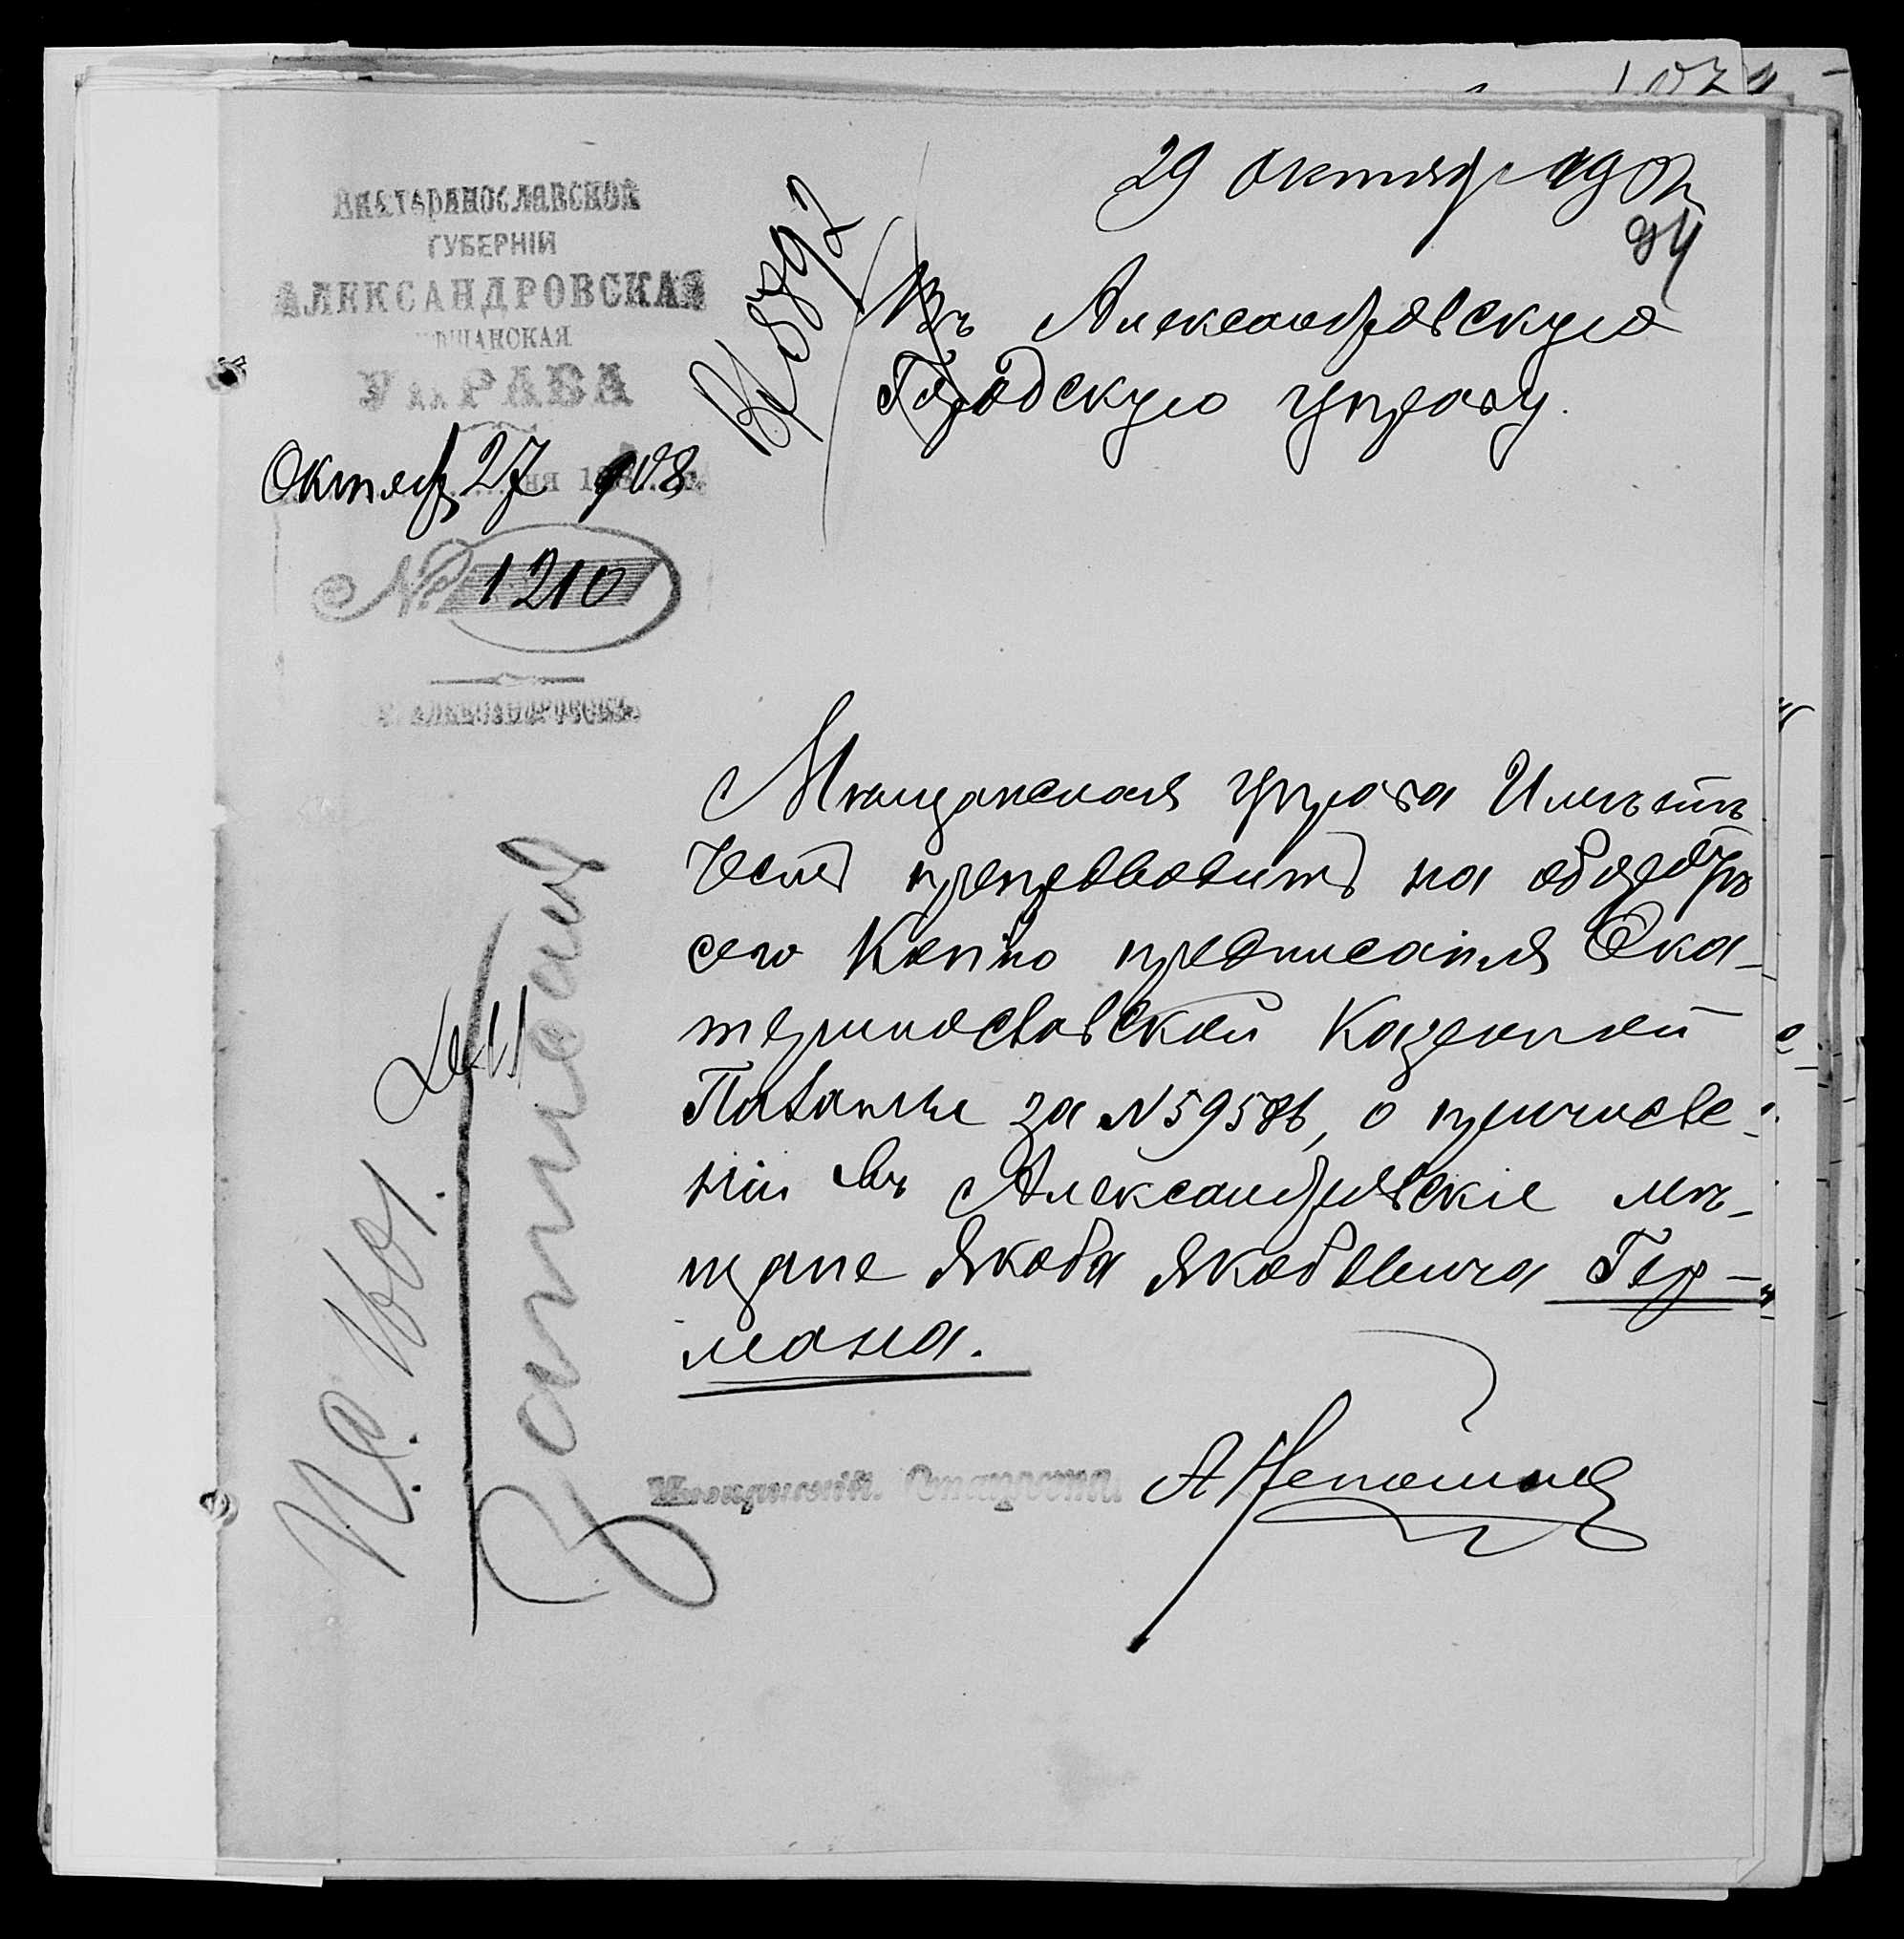 29 октября 190
84
ЕКАТЕРИНОСЛАВСКОЙ
ГУБЕРНІИ
АЛЕКСАНДРОВСКАЯ
МѢЩАНСКАЯ
УПРАВА
Октября 27 дня 1908 г.
№ 1210
Г. АЛЕКСАНДРОВСКЪ.
Въ Александровскую
Городскую управу.
Мѣщанская управа Имѣетъ
честь препроводить на обзоръ
сего Копію предписанія Ека-
теринославской Казенной
Палаты за №, о причисле-
ніи въ Александровскіе мѣ-
щане Якова Яковлевича Гер-
мана.
Мѣщанскій Староста
Записан